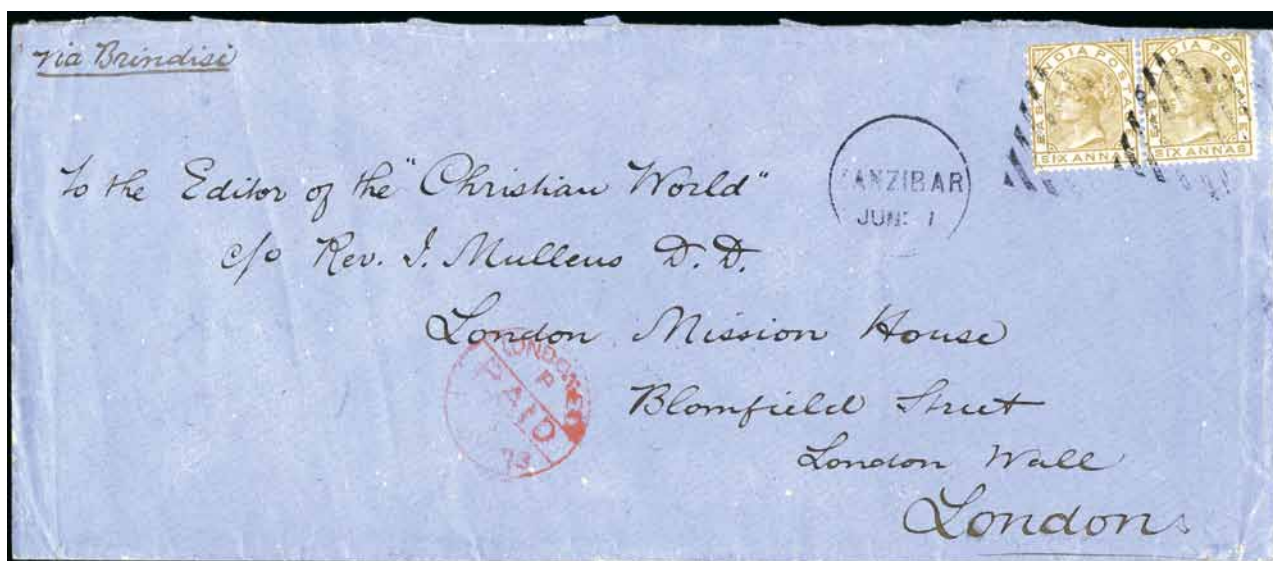 via Brindisi
EAST INDIA POSTAGE
SIX ANNAS
INDIA POSTAGE
SIX ANNAS
ZANZIBAR
JUN: 1
To the Editor of the "Christian World"
c/o Rev. J. Mullens D.D.
London Mission House
Blomfield Street
London Wall
London
LONDON
PAID
73